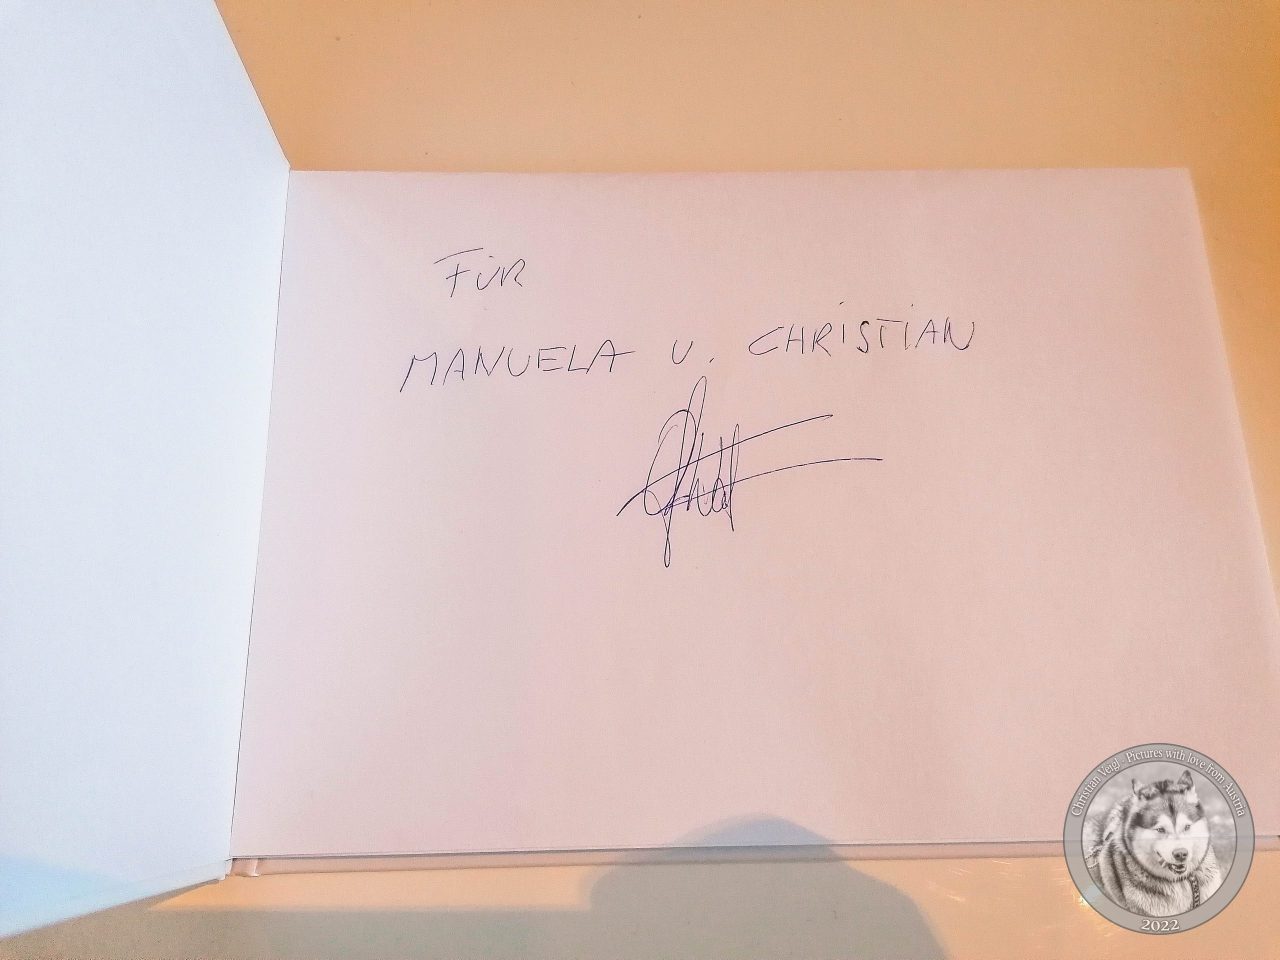 FÜR
MANUELA U. CHRISTIAN
Christian Veigl . Pictures with love from Austria
2022